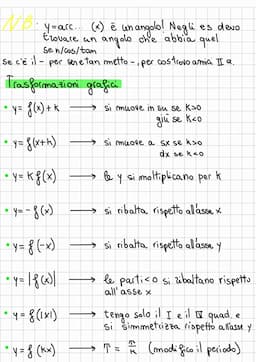 N.B. y=arc... (x) è un angolo! Negli es devo
trovare un angolo che abbia quel
sen/cos/tan
se c'è il - per sen e tan metto -, per cos trovo amia II a.
Trasformazioni grafici
• y= f(x)+k → si muove in su se k>0
giù se k<0
• y= f(x+k) → si muove a sx se k>0
dx se k<0
• y= K f(x) → le y si moltiplicano per k
• y=- f(x) → si ribalta rispetto all'asse x
• y= f(-x) → si ribalta rispetto all'asse y
• y= |f(x)| → le parti <0 si ribaltano rispetto
all'asse x
• y= f(|x|) → tengo solo il I e il IV quad. e
si simmetrizza rispetto all'asse y
• y= f(kx) → T= π/k (modifico il periodo)